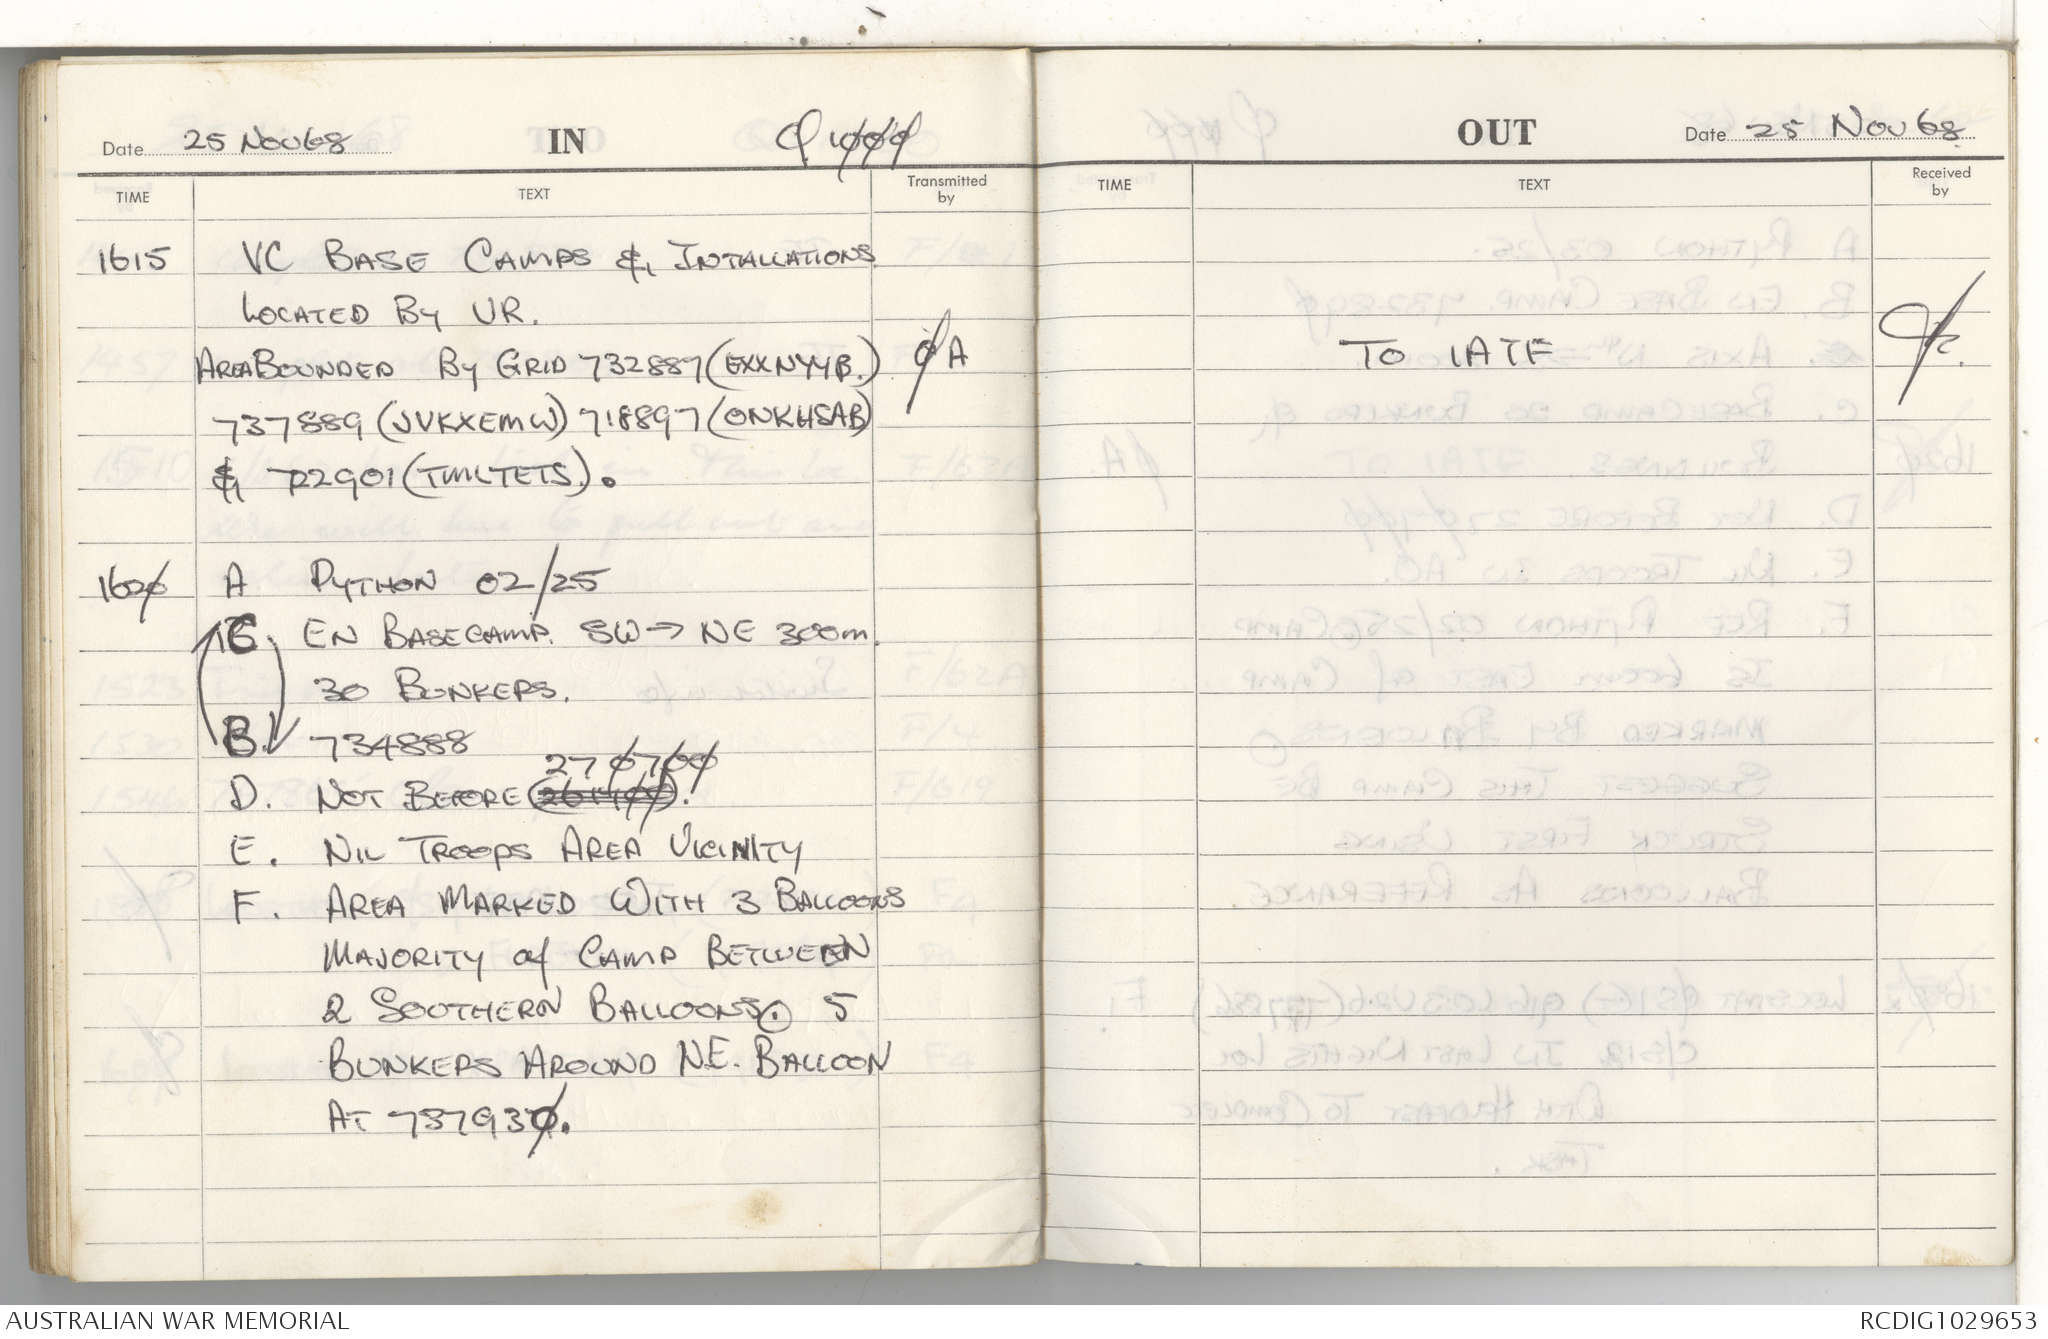 Date 25 NOV 68 IN
TIME TEXT Transmitted by
1615 VC BASE CAMPS & INTALLATIONS
LOCATED BY VR.
AREA BOUNDED BY GRID 732887 (EXXNYYB.) 0A
737889 (JVKXEMW) 718897 (ONKHSAB)
& 722901 (TMLTETS).
1620 A PYTHON 02/25
C. EN BASECAMP. SW → NE 300m.
30 BUNKERS.
B. 734888
270700
D. NOT BEFORE
E. NIL TROOPS AREA VICINITY
F. AREA MARKED WITH 3 BALLOONS
MAJORITY of CAMP BETWEEN
2 SOUTHERN BALLOONS. 5
BUNKERS AROUND N.E. BALLOON
AT 737930.
OUT Date 25 NOV 68
TIME TEXT Received by
TO 1ATF
AUSTRALIAN WAR MEMORIAL
RCDIG1029653